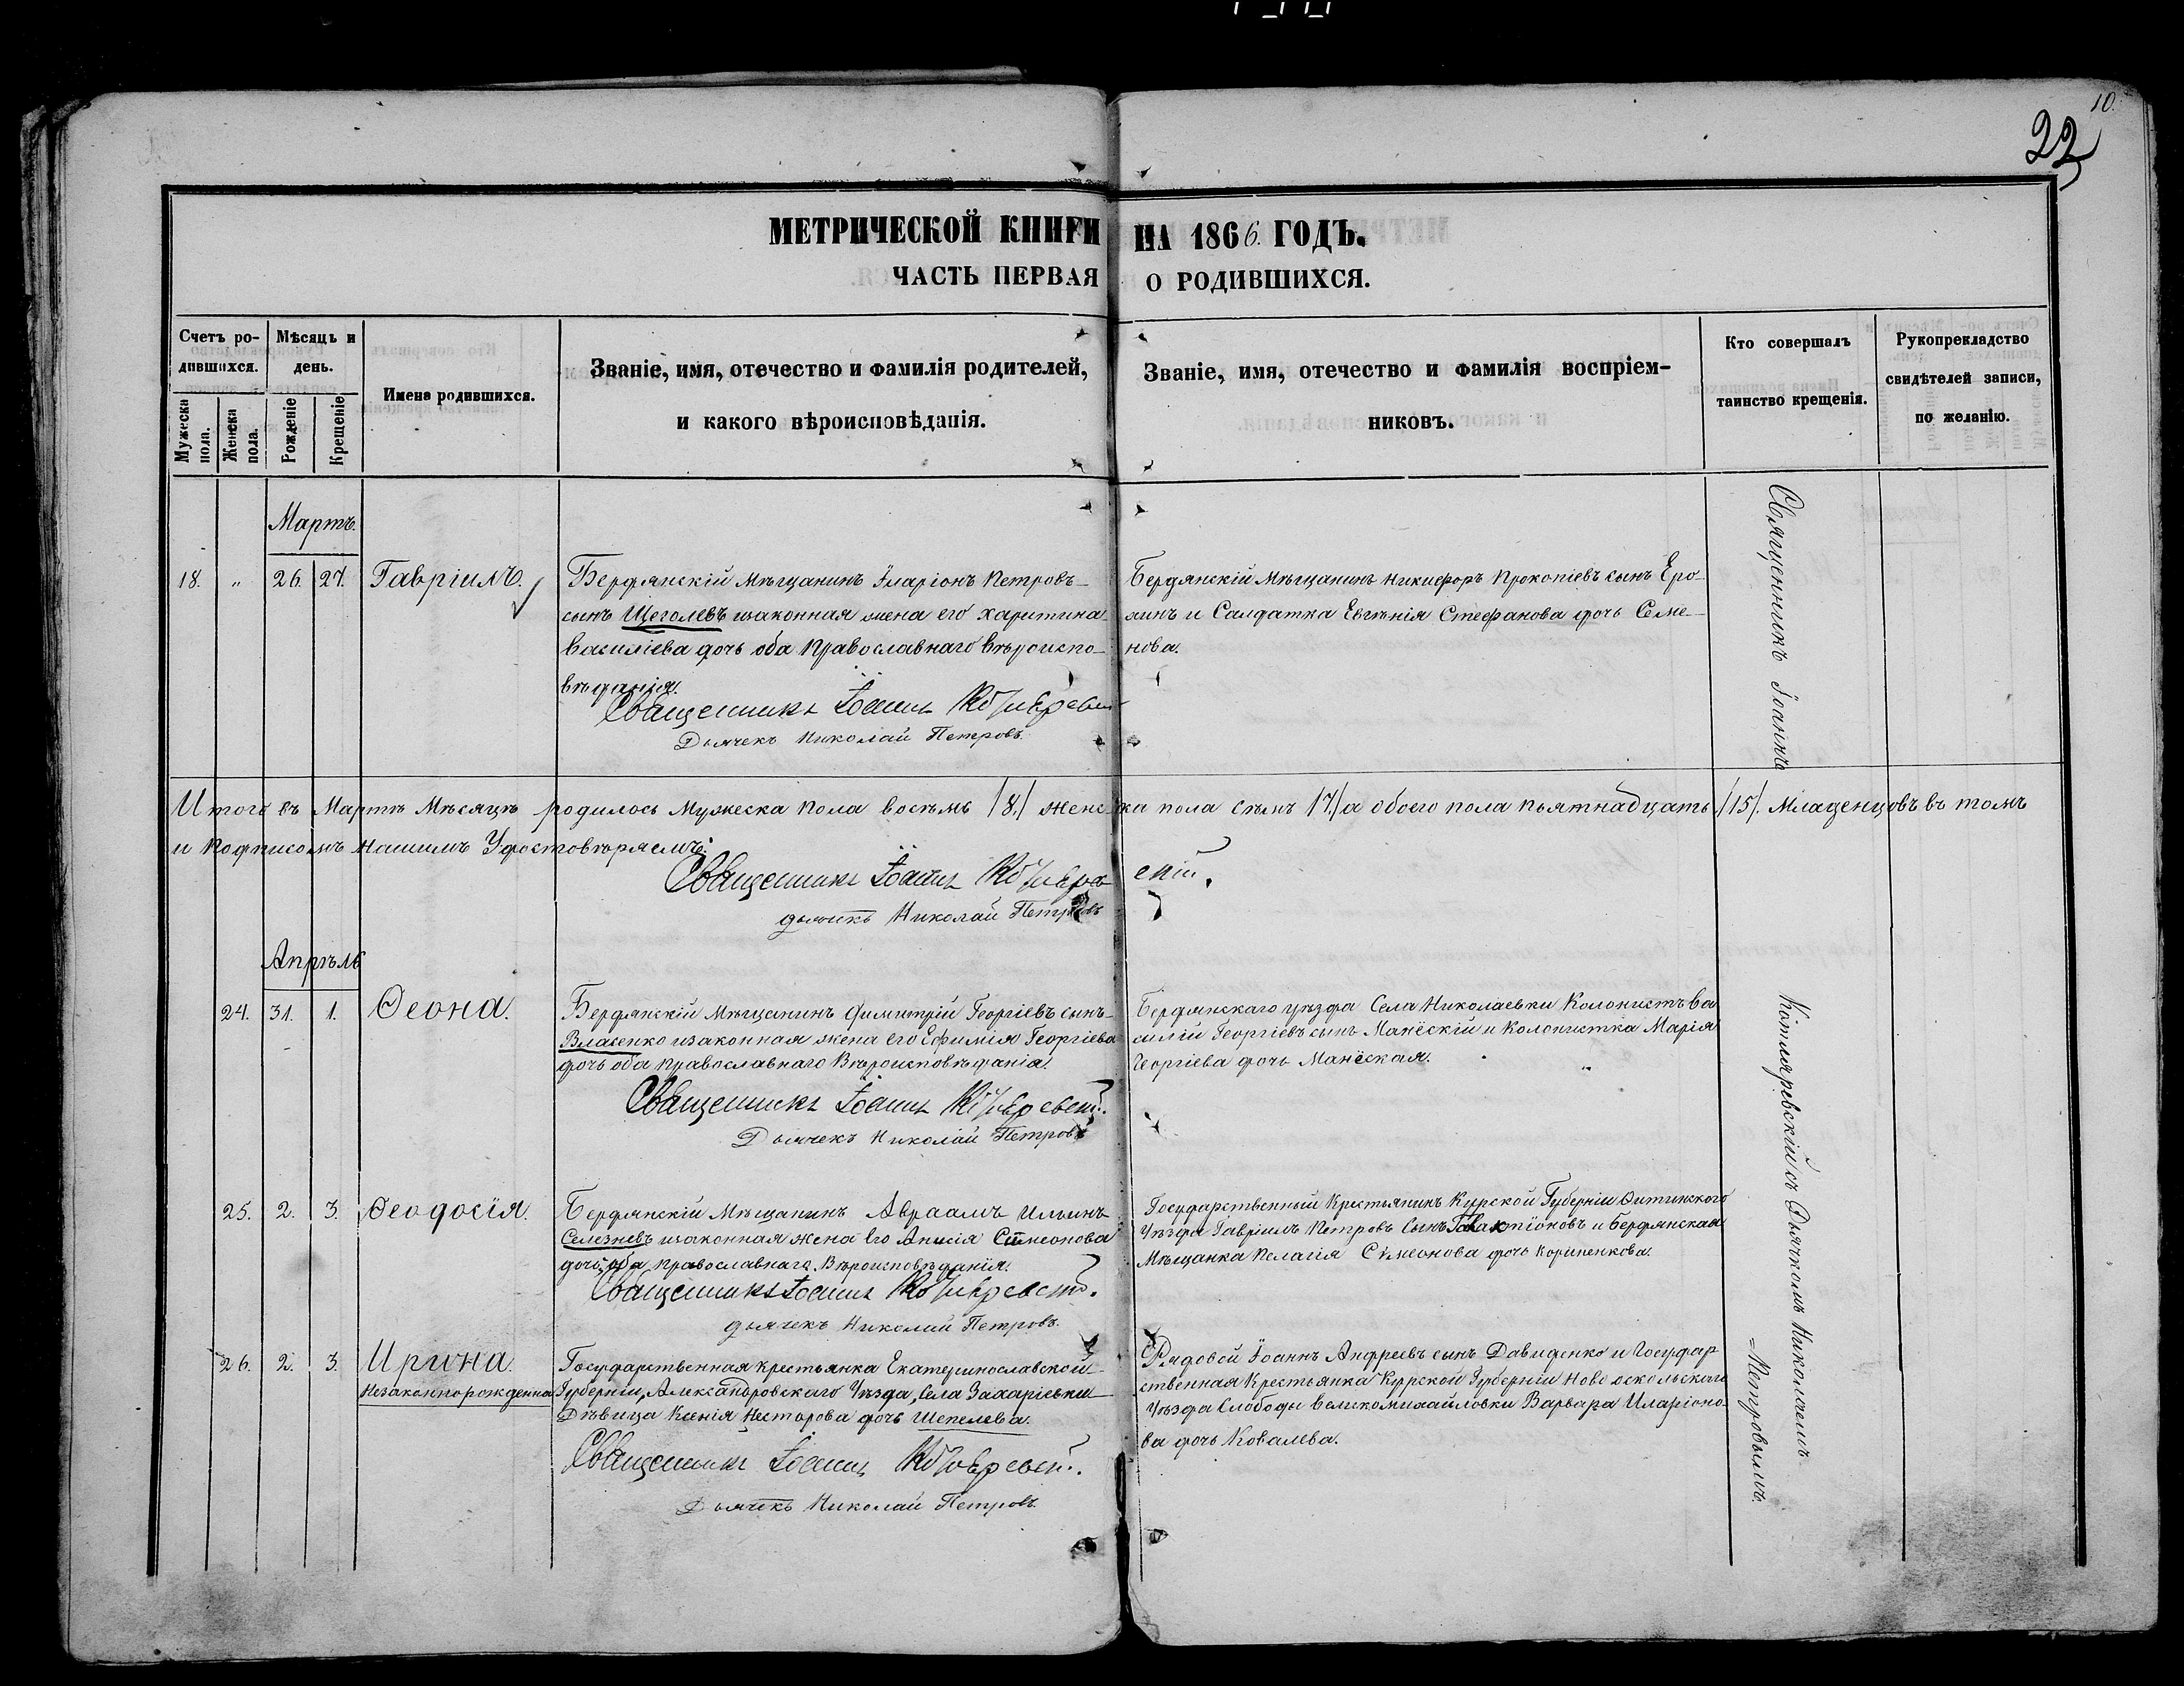 10.
22
МЕТРИЧЕСКОЙ КНИГИ НА 1866. ГОДЪ.
ЧАСТЬ ПЕРВАЯ О РОДИВШИХСЯ.
Счетъ ро-
дившихся.
Мужеска
пола.
Женска
пола.
Мѣсяць и
день.
Рожденіе
Крещеніе
Имена родившихся.
Званіе, имя, отечество и фамилія родителей,
и какого вѣроисповѣданія.
Званіе, имя, отечество и фамилія воспріем-
никовъ.
Кто совершалъ
таинство крещенія.
Рукоприкладство
свидѣтелей записи,
по желанію.
Мартъ.
18. „ 26. 27. Гавріилъ.
Бердянскій Мѣщанинъ Иларіонъ Петровъ
сынъ Щеголевъ изаконная жена его Харитина
Василіева дочь оба Православнаго вѣроиспо-
вѣданія.
Священникъ Іоаннъ Котляревскій
Дьячекъ Николай Петровъ.
Бердянскій Мѣщанинъ Никифоръ Прокопіевъ сынъ Еро-
хинъ и Салдатка Евгѣнія Стефанова дочь Семе-
нова.
Итого въ Мартѣ Мѣсяцѣ родилось Мужеска пола восѣмь /8./ женска пола сѣмъ /7./ а обоего пола пьятнадцать /15/. Младенцовъ въ томъ
и подписомъ нашимъ Удостовѣряемъ:
Священникъ Іоаннъ Котляревскій.
дьячекъ Николай Петровъ
Апрѣль
24. 31. 1. Ѳеона.
Бердянскій Мѣщанинъ Димитрій Георгіевъ сынъ
Власенко изаконная жена его Ефимія Георгіева
дочь оба православнаго Вѣроисповѣданія.
Священникъ Іоаннъ Котляревскій.
Дьячекъ Николай Петровъ
Бердянскаго уѣзда Села Николаевки Колонистъ Ва
силій Георгіевъ сынъ Манёскій и Колонистка Марія
Георгіева дочь Манёская.
25. 2. 3. Ѳеодосія.
Бердянскій Мѣщанинъ Авраамъ Ильинъ
Селезневъ изаконная жена его Анисія Симеонова
дочь, оба православнаго Вѣроисповѣданія.
Священникъ Іоаннъ Котляревскій.
дьячекъ Николай Петровъ.
Государственный Крестьянинъ Курской Губерніи
Уѣзда Гавріилъ Петровъ Сынъ Галактіоновъ и Бердянская
Мѣщанка Пелагія Симеонова дочь Корниенкова.
26. 2. 3 Ирина.
Незаконнорожденна
Государственная крестьянка Екатеринославской
Губерніи, Александровскаго Уѣзда, Села Захаріевки
Дѣвица Ксенія Несторова дочь Шепелева.
Священникъ Іоаннъ Котляревскій.
Дьячекъ Николай Петровъ.
Рядовой Іоаннъ Андреевъ сынъ Давиденко и Государ
ственная Крестьянка Курской Губерніи Ново оскольскаго
Уѣзда Слободы Великомихайловки Варвара Иларіоно
ва дочь Ковалева.
Священникъ Іоаннъ
Котляревскій съ Дьячкомъ Николаемъ
=Петровымъ.